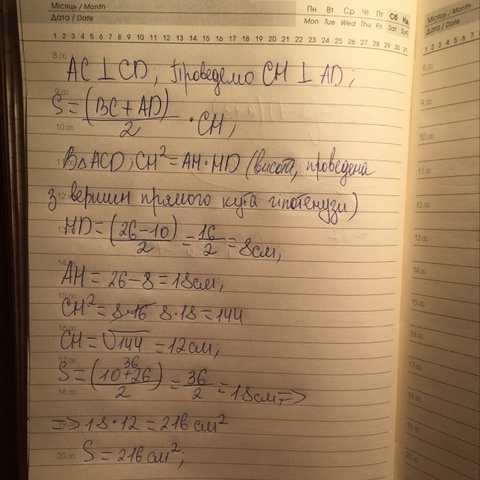 Місяць / Month
Дата / Date
Пн Вт Ср Чт Пт Сб Нд
Mon Tue Wed Thu Fri Sat Sun
1 2 3 4 5 6 7 8 9 10 11 12 13 14 15 16 17 18 19 20 21 22 23 24 25 26 27 28 29 30 31
8.00
AC ⊥ CD, Проведемо CH ⊥ AD;
S = (BC + AD)/2 · CH,
10.00
В △ ACD: CH² = AH · HD (висота, проведена
з вершин прямого кута гіпотенузи)
HD = (26 - 10)/2 = 16/2 = 8 см,
14.00
AH = 26 - 8 = 18 см,
15.00
CH² = 8·16 8·18 = 144
CH = √144 = 12 см,
17.00
36
S = (10 + 26)/2 = 36/2 = 18 см, =>
18.00
=> 18 · 12 = 216 см²
20.00
S = 216 см²;
Місяць / Month
Дата / Date
1 2 3 4 5 6 7
8.00
9.00
10.00
11.00
12.00
13.00
14.00
15.00
16.00
17.00
18.00
19.00
20.00